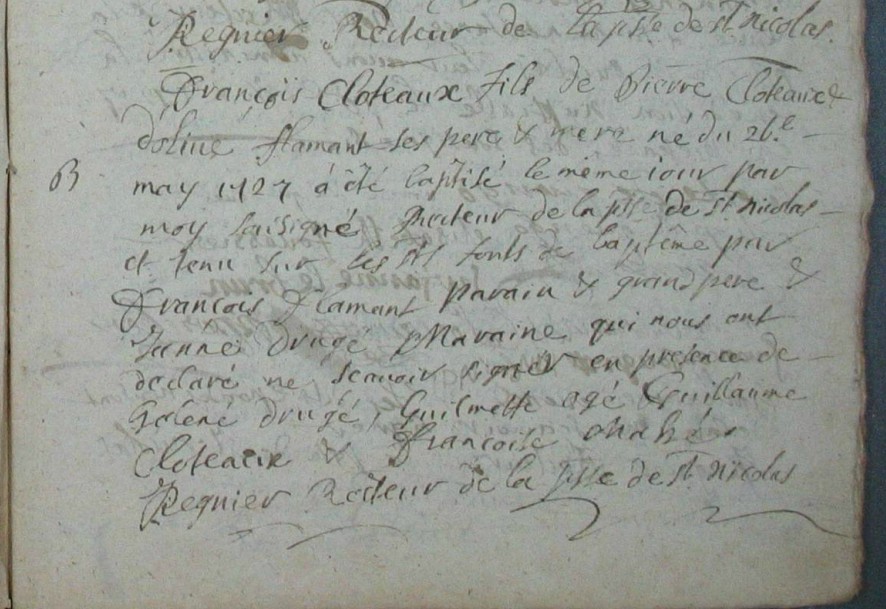 Regnier Recteur de la psse de st nicolas.
François Cloteaux fils de Pierre Cloteaux &
dolive flamant ses pere & mere né du 26.e
B
may 1727 à été baptisé le même iour par
moy soûsigné Recteur de la psse de st nicolas
et tenu sur les sts fonts de baptême par
François flamant Parain & grand pere &
Jeanne Drugé Maraine qui nous ont
declaré ne scavoir signer en presence de
helene drugé, Guilmette agé Guillaume
Cloteaux & Françoise Mahé
Regnier Recteur de la psse de st nicolas